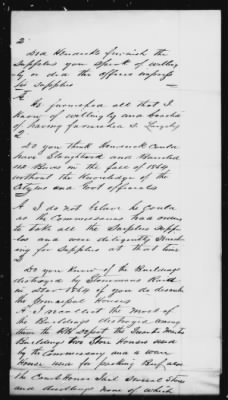 2
Did Hendricks furnish the
supplies you speak of willing-
ly or did the officers impress
his supplies
A
He furnished all that I
know of willingly and boasted
of having furnished so largely
2
Do you think Hendricks could
have slaughtered and
in the fall of 1864
without the Knowledge of the
Citizens and Govt officials
A I do not believe he could
as the Commissaries had orders
to take all the Surplus Supp-
lies and were diligently Search-
ing for Supplies at that time
2
Do you know of the Buildings
destroyed by Stonemans Raid
in Dec 1864 if you do describe
the principal Houses
A I recollect the most of
the Buildings destroyed among
them the RR depot the
Buildings two Store Houses used
by the Commissary and a ware
house used for packing Beef, also
the Court House Jail Several Stores
and dwellings none of which